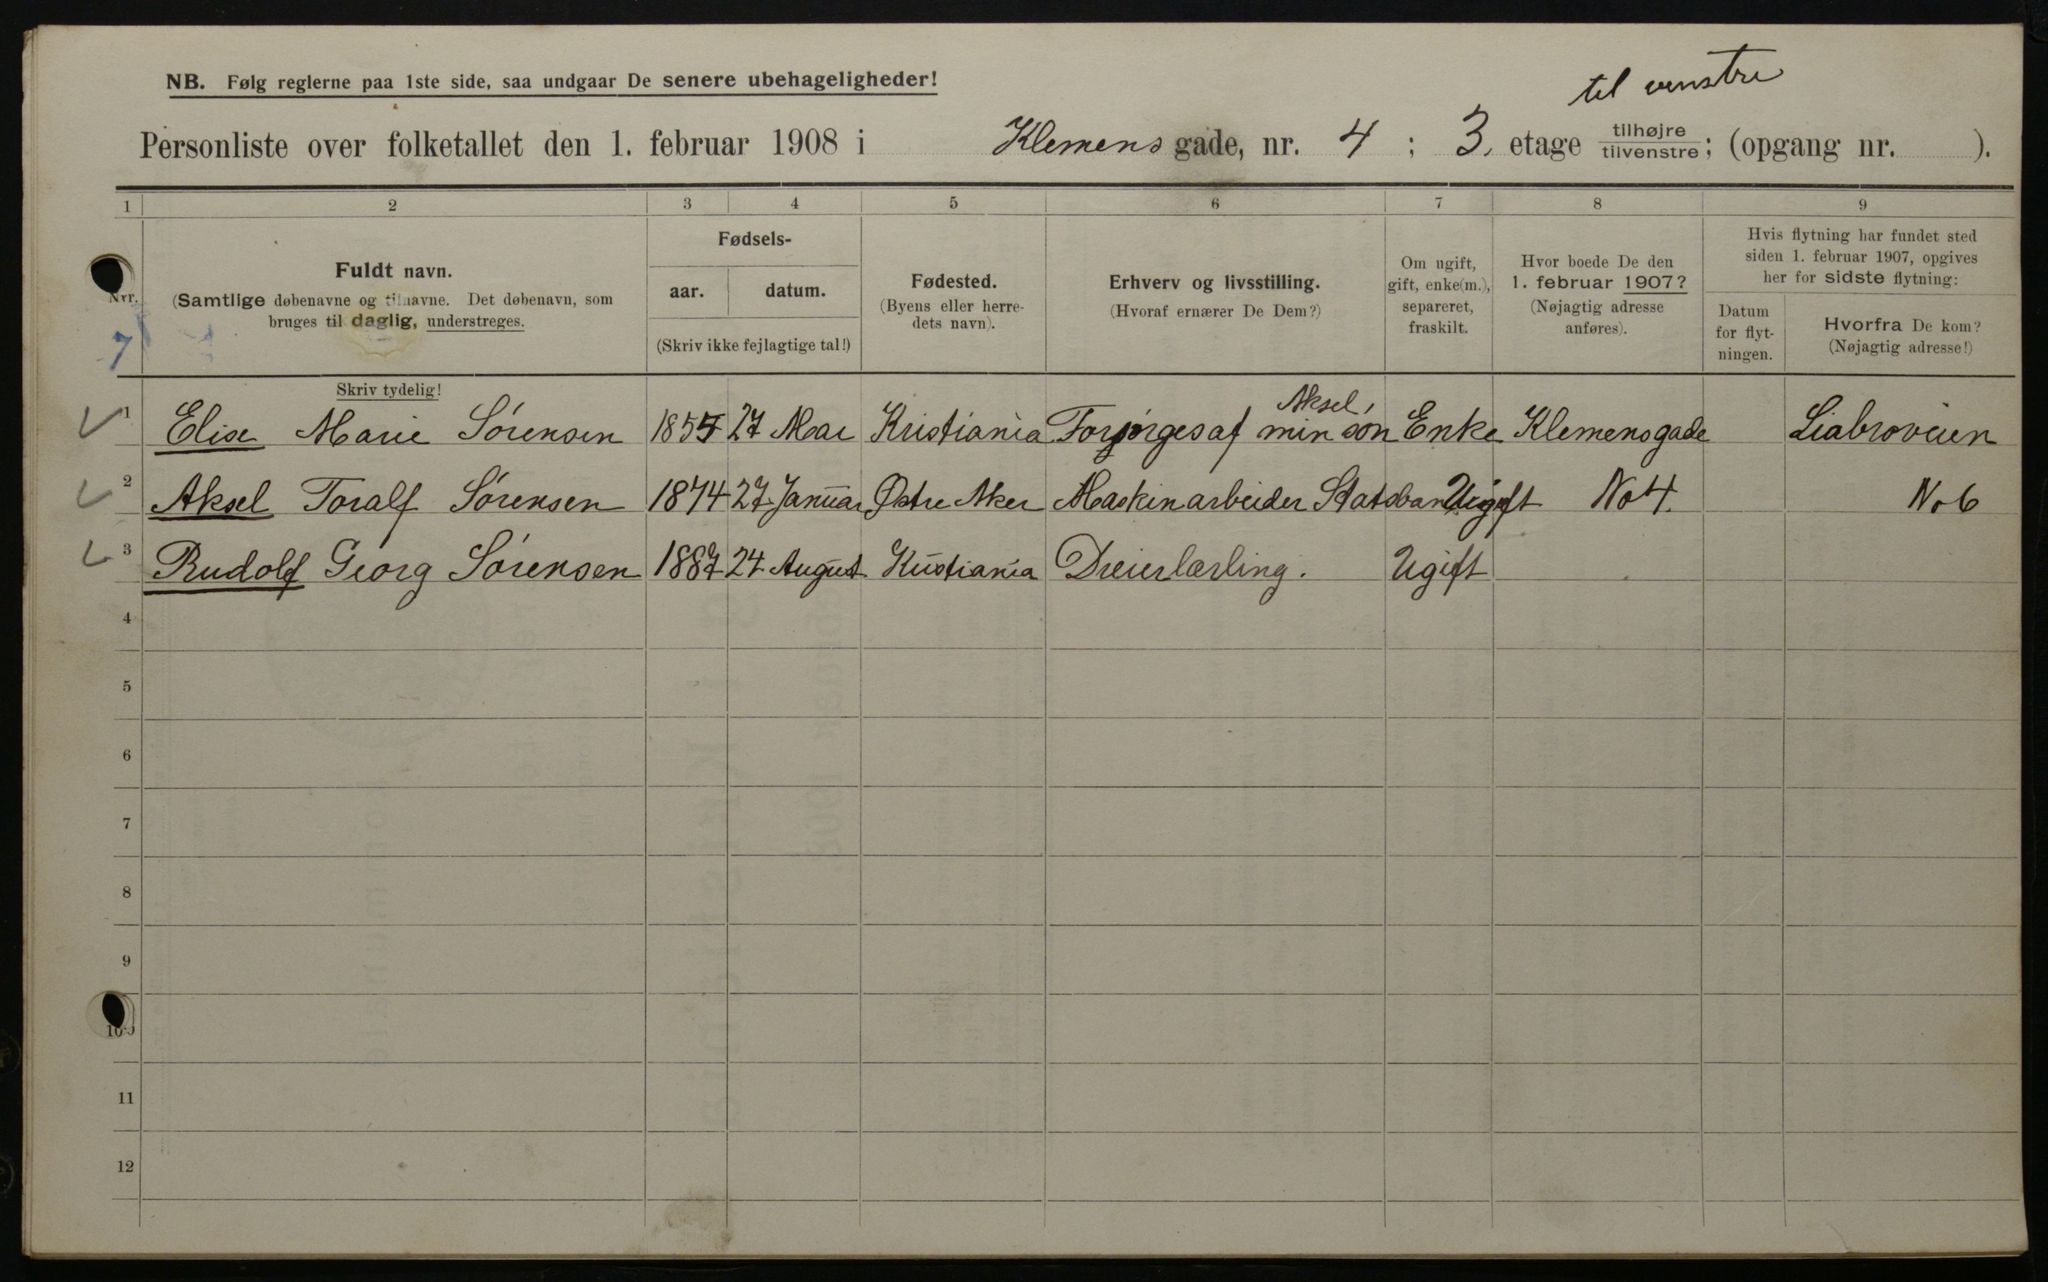 til venstre
NB. Følg reglerne paa 1ste side, saa undgaar De senere ubehageligheder!
Personliste over folketallet den 1. februar 1908 i Klemens gade, nr. 4 ; 3. etage tilhøjre tilvenstre; (opgang nr. ).
1 2 3 4 5 6 7 8 9
Nvr.
7
Fuldt navn.
(Samtlige døbenavne og tilnavne. Det døbenavn, som
bruges til daglig, understreges.
Skriv tydelig!
Fødsels-
aar. datum.
(Skriv ikke fejlagtige tal!)
Fødested.
(Byens eller herre-
dets navn).
Erhverv og livsstilling.
(Hvoraf ernærer De Dem?)
Om ugift,
gift, enke(m.),
separeret,
fraskilt.
Hvor boede De den
1. februar 1907?
(Nøjagtig adresse
anføres).
Hvis flytning har fundet sted
siden 1. februar 1907, opgives
her for sidste flytning:
Datum
for flyt-
ningen.
Hvorfra De kom?
(Nøjagtig adresse!)
Aksel,
1 Elise Marie Sørensen 27 Mai Kristiania Forsørges af min søn Enke Klemensgade Liabroveien
2 Aksel Toralf Sørensen 1874 27 Januar Østre Aker Maskinarbeider Statsban Ugift No 4. No 6
3 Rudolf Georg Sørensen 1887 24 August Kristiania Dreierlærling. Ugift
4
5
6
7
8
9
10
11
12